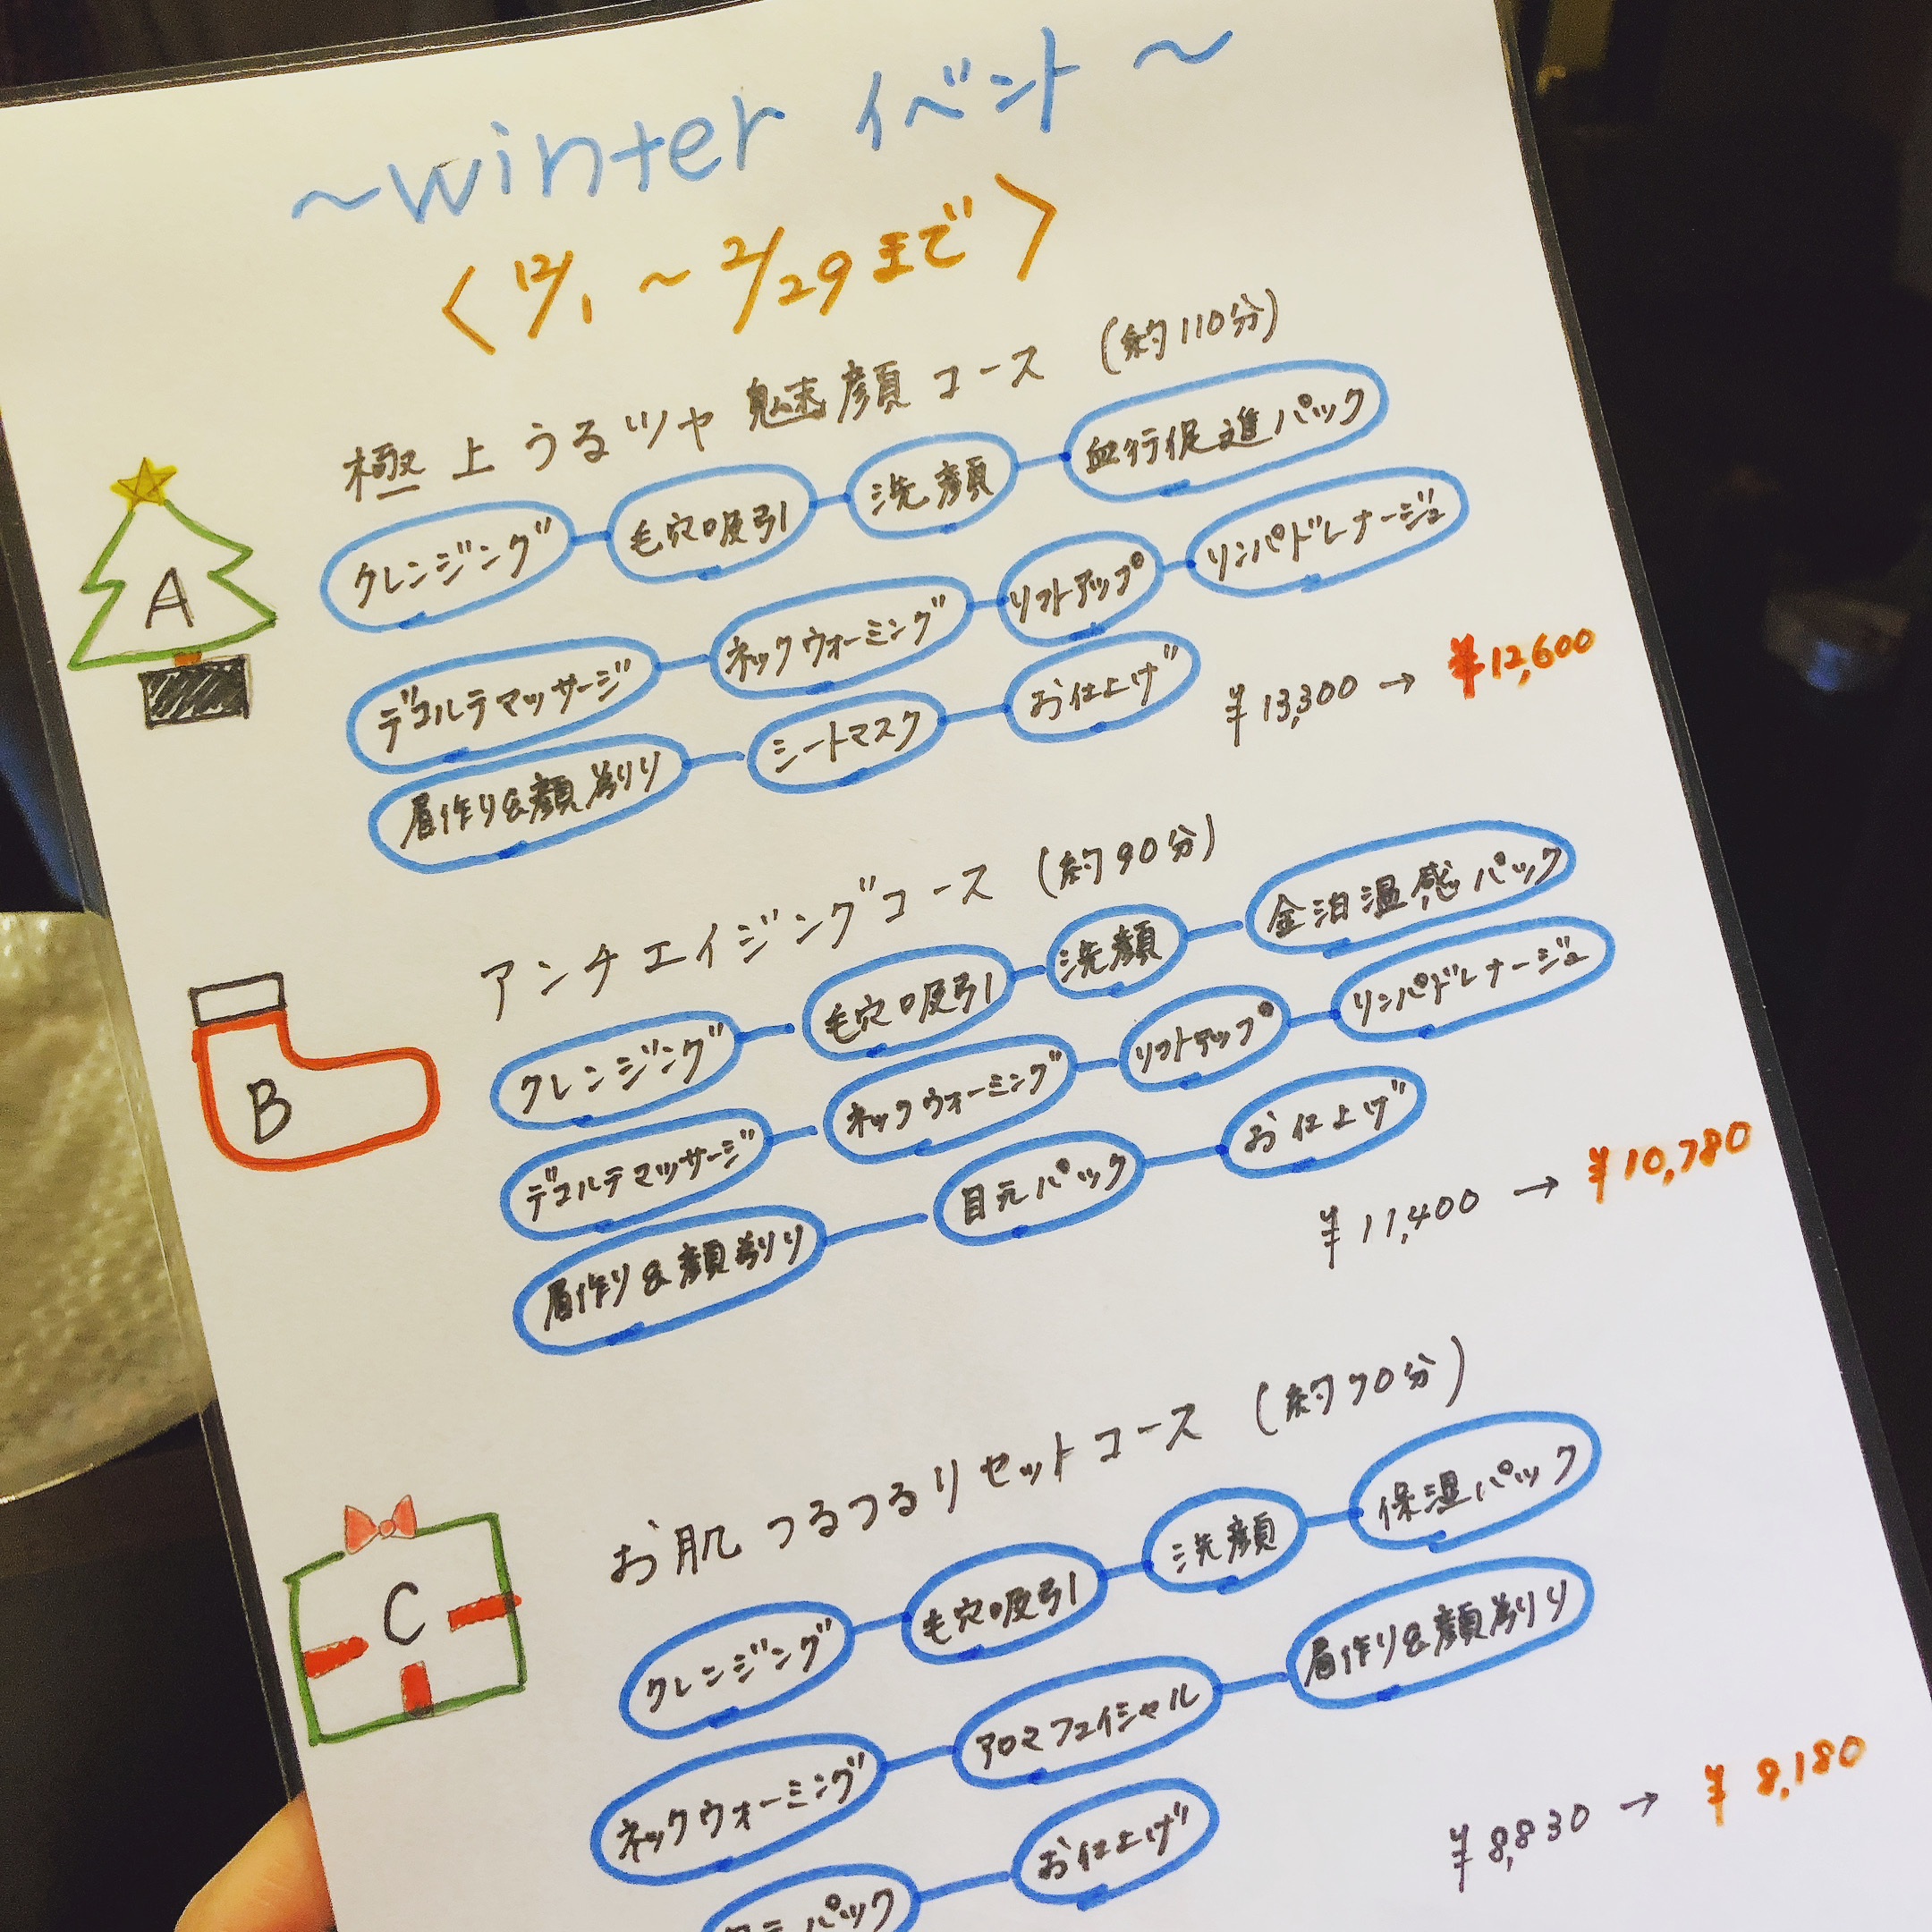 ~winter イベント~
<12/1 ~ 2/29まで>
極上うるツヤ魅顔コース (約110分)
クレンジング 毛穴吸引 洗顔 血行促進パック
デコルテマッサージ ネックウォーミング リフトアップ リンパドレナージュ
眉作り&顔剃り シートマスク お仕上げ
¥13,300 → ¥12,600
A
アンチエイジングコース (約90分)
クレンジング 毛穴吸引 洗顔 金泊温感パック
デコルテマッサージ ネックウォーミング リフトアップ リンパドレナージュ
眉作り&顔剃り 目元パック お仕上げ
¥11,400 → ¥10,780
B
お肌つるつるリセットコース (約70分)
クレンジング 毛穴吸引 洗顔 保湿パック
ネックウォーミング アロマフェイシャル 眉作り&顔剃り
パック お仕上げ
¥8,830 → ¥8,180
C